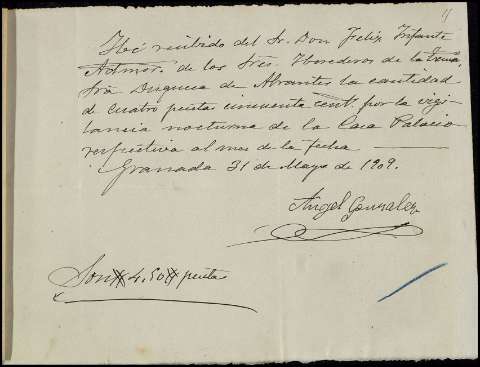 11
He recibido del Sr. Don Felix Infante
Admor. de los Sres. Herederos de la Excma.
Sra Duquesa de Abrantes, la cantidad
de cuatro pesetas cincuenta cent. por la vigi-
lancia nocturna de la Casa Palacio
respectiva al mes de la fecha
Granada 31 de Mayo de 1909.
Angel Gonzalez
Son # 4,50 # pesetas